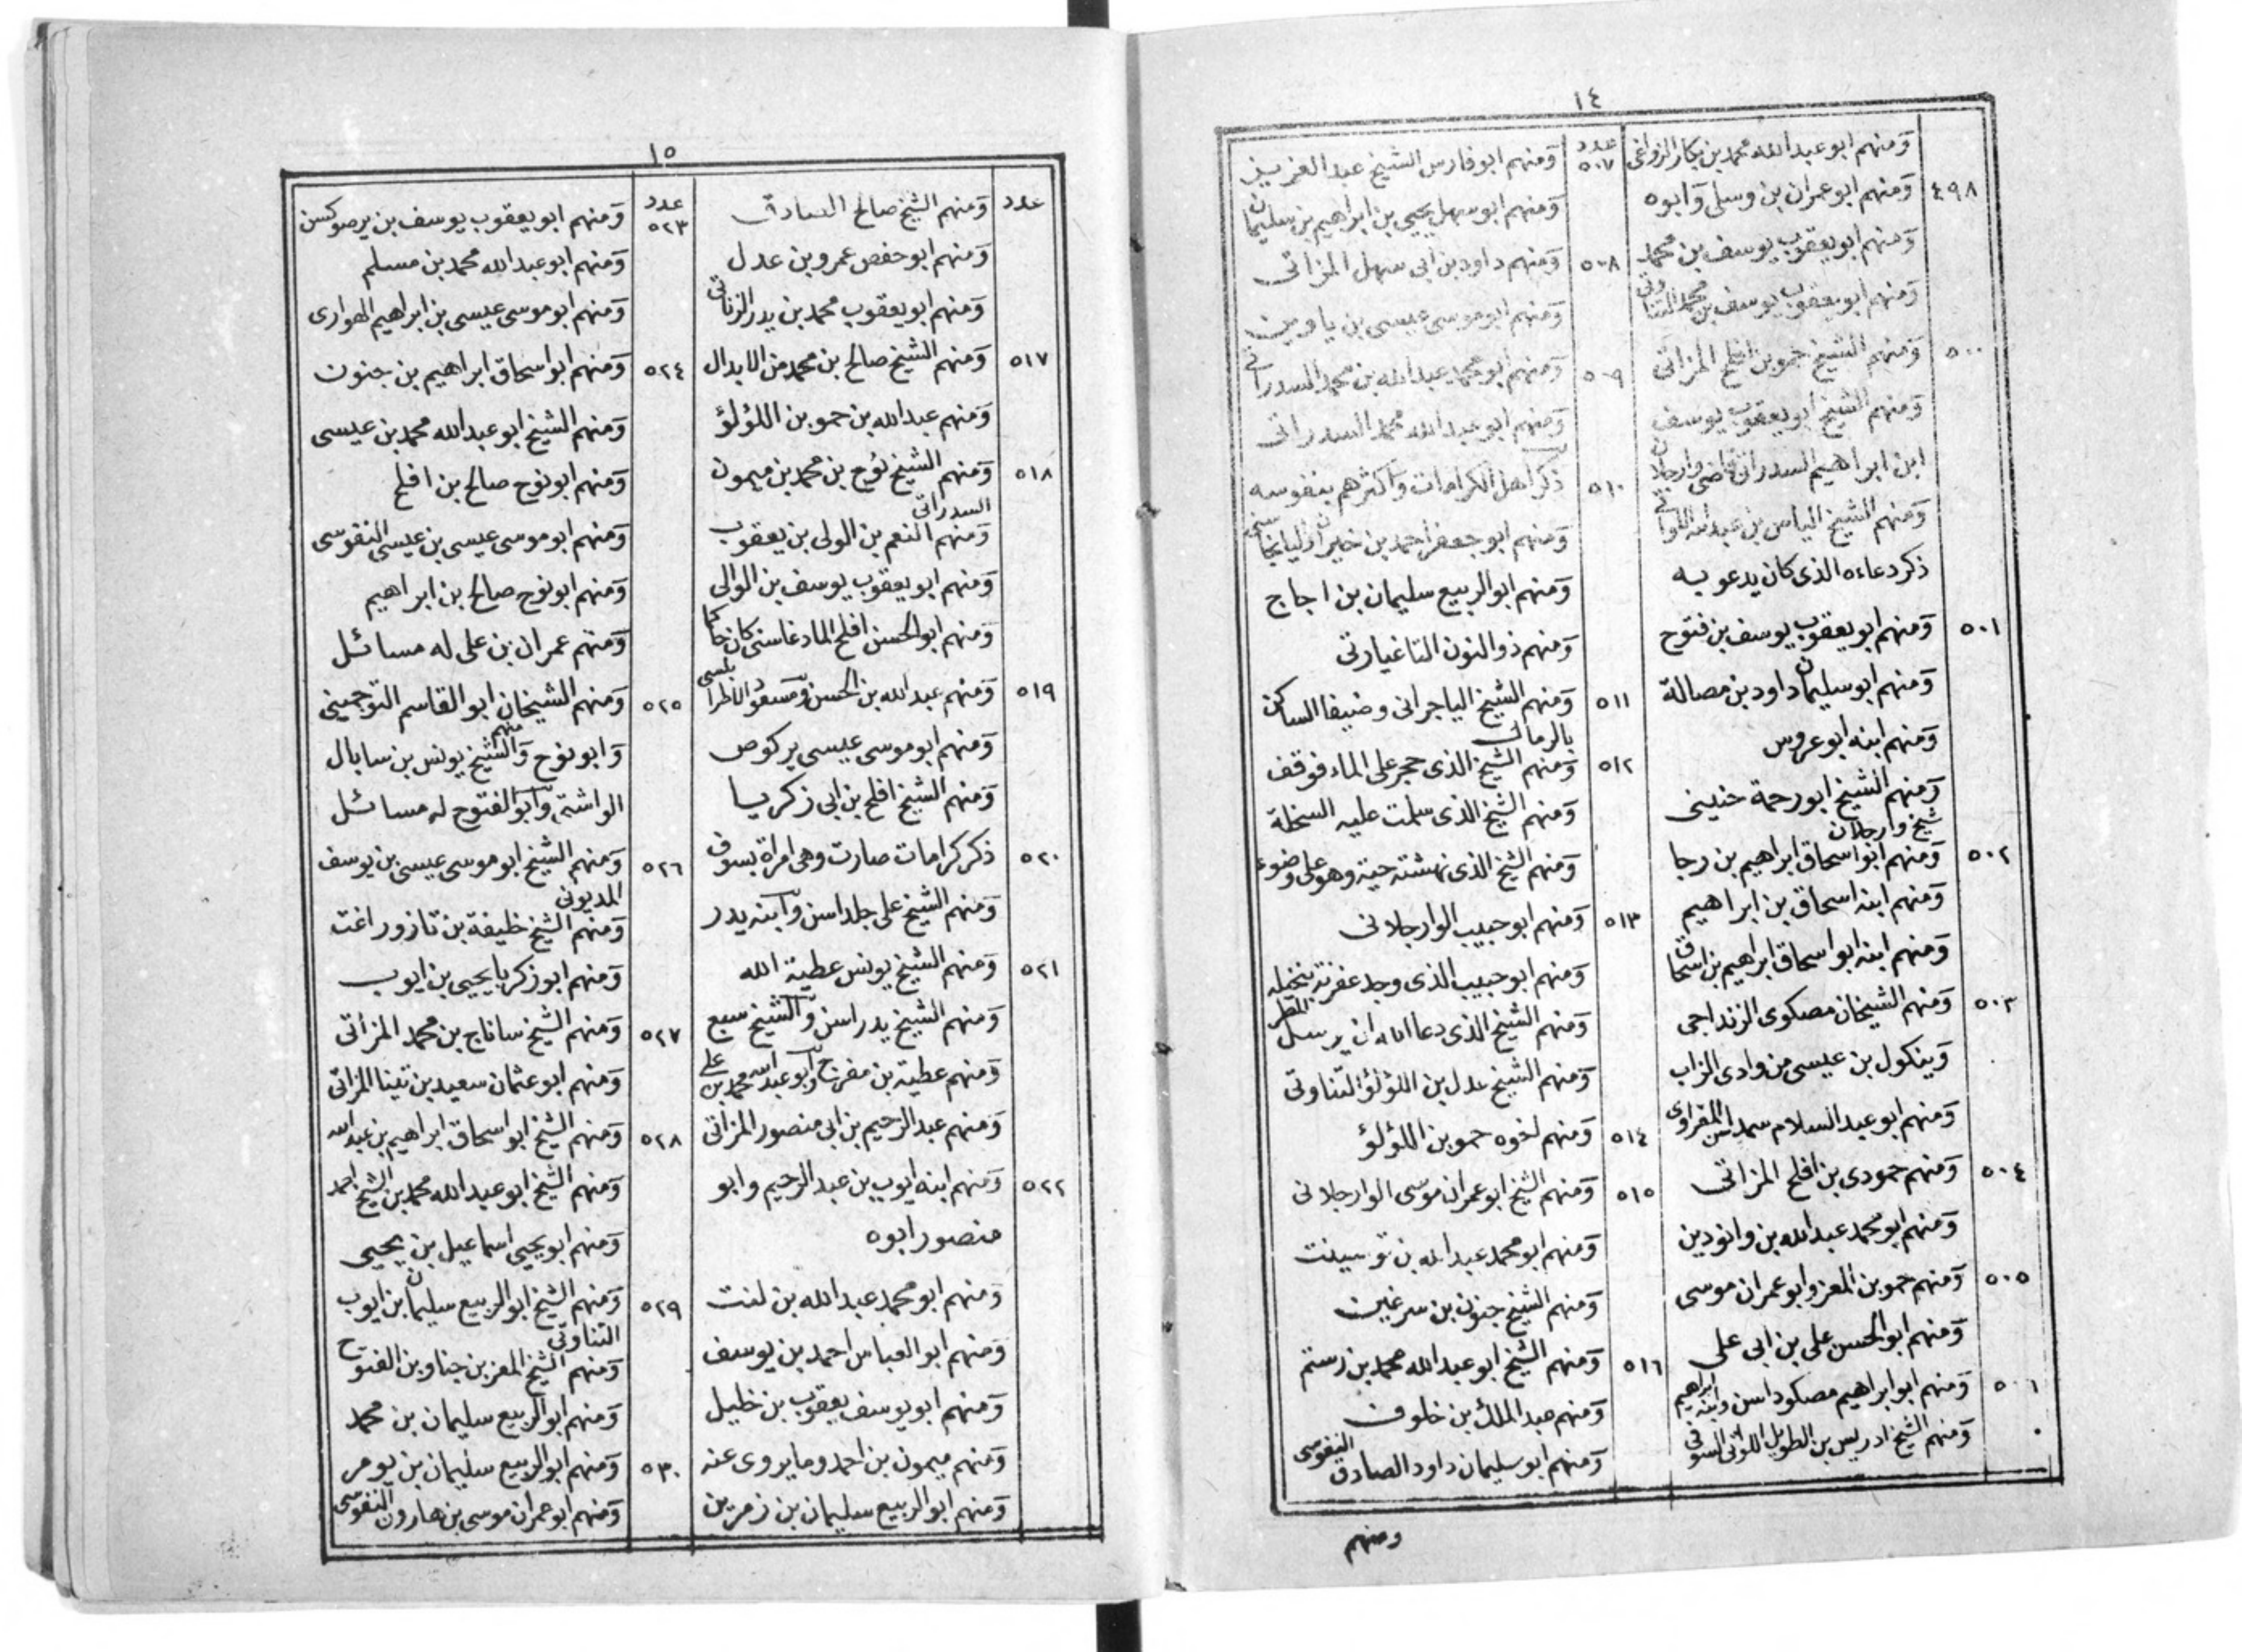 ١٤
ومنهم ابو عبد الله محمد بن بكار الزواغى
٤٩٨ ومنهم ابو عمران بن وسلى وابوه
ومنهم ابو يعقوب يوسف بن محمد
ومنهم ابو يعقوب يوسف بن محمد التناوتى
٥٠٠ ومنهم الشيخ حمو بن افلح المزاتى
ومنهم الشيخ ابو يعقوب يوسف
ابن ابراهيم السدراتى قاضى وارجلان
ومنهم الشيخ الياس بن عبد الله اللواتى
ذكر دعاءه الذى كان يدعو به
٥٠١ ومنهم ابو يعقوب يوسف بن فتوح
ومنهم ابو سليمان داود بن مصالة
ومنهم ابنه ابو عروس
ومنهم الشيخ ابو رحمة حنينى
شيخ وارجلان
٥٠٢ ومنهم ابو اسحاق ابراهيم بن رجا
ومنهم ابنه اسحاق بن ابراهيم
ومنهم ابنه ابو اسحاق ابراهيم بن اسحاق
٥٠٣ ومنهم الشيخان مصكوى الزنداجى
وينكول بن عيسى من وادى الزاب
ومنهم ابو عبد السلام المغراوى
٥٠٤ ومنهم حمودى بن افلح المزاتى
ومنهم ابو محمد عبد الله بن وانودين
٥٠٥ ومنهم حمو بن المعز وابو عمران موسى
ومنهم ابو الحسن على بن ابى على
٥٠٦ ومنهم ابو ابراهيم مصكوداسن وابنه ابراهيم
ومنهم الشيخ ادريس بن الطويل اللواتى السوفى
عدد
٥٠٧ ومنهم ابو فارس الشيخ عبد العزيز
ومنهم ابو سهل يحيى بن ابراهيم بن سليمان
٥٠٨ ومنهم داود بن ابى سهل المزاتى
ومنهم ابو موسى عيسى بن ياوين
٥٠٩ ومنهم ابو محمد عبد الله بن محمد السدراتى
ومنهم ابو عبد الله محمد السدراتى
٥١٠ ذكر اهل الكرامات واكثرهم بنفوسه
ومنهم ابو جعفر احمد بن خيران
ومنهم ابو الربيع سليمان بن اجاج
ومنهم ذو النون التاغيارتى
٥١١ ومنهم الشيخ الياجرانى وضيفا الساكن
بالرمال
٥١٢ ومنهم الشيخ الذى حجر على الماء فوقف
ومنهم الشيخ الذى سلمت عليه السخلة
ومنهم الشيخ الذى نهشته حية وهو على وضوء
٥١٣ ومنهم ابو حبيب الوارجلانى
ومنهم ابو حبيب الذى وجد عفرته بنخله
ومنهم الشيخ الذى دعا الله ان يرسل المطر
ومنهم الشيخ عدل بن اللؤلؤ التناوتى
٥١٤ ومنهم اخوه حمو بن اللؤلؤ
٥١٥ ومنهم الشيخ ابو عمران موسى الوارجلانى
ومنهم ابو محمد عبد الله بن توسينت
ومنهم الشيخ جنون بن سرغين
٥١٦ ومنهم الشيخ ابو عبد الله محمد بن رستم
ومنهم عبد الملك بن خلوف
ومنهم ابو سليمان داود الصادق النفوسى
ومنهم
١٥
عدد ومنهم الشيخ صالح الصادق
ومنهم ابو حفص عمرو بن عدل
ومنهم ابو يعقوب محمد بن يدر الزناتى
٥١٧ ومنهم الشيخ صالح بن محمد من الابدال
ومنهم عبد الله بن حمو بن اللؤلؤ
٥١٨ ومنهم الشيخ نوح بن محمد بن ميمون
السدراتى
ومنهم النعم بن الولى بن يعقوب
ومنهم ابو يعقوب يوسف بن الوالى
ومنهم ابو الحسن افلح المادغاسنى كان حاكما
٥١٩ ومنهم عبد الله بن الحسن ومسعود الاطرابلسى
ومنهم ابو موسى عيسى يركوص
ومنهم الشيخ افلح بن ابى زكريا
٥٢٠ ذكر كرامات صارت وهى امراة بسوف
ومنهم الشيخ على جلداسن وابنه يدر
٥٢١ ومنهم الشيخ يونس عطية الله
ومنهم الشيخ يدراسن والشيخ سبع
ومنهم عطية بن مفرتاح وابو عبد الله محمد بن على
ومنهم عبد الرحيم بن ابى منصور المزاتى
٥٢٢ ومنهم ابنه ايوب بن عبد الرحيم وابو
منصور ابوه
ومنهم ابو محمد عبد الله بن لنت
ومنهم ابو العباس احمد بن يوسف
ومنهم ابو يوسف يعقوب بن خليل
ومنهم ميمون بن احمد وما يروى عنه
ومنهم ابو الربيع سليمان بن زمرين
عدد
٥٢٣ ومنهم ابو يعقوب يوسف بن يرصوكسن
ومنهم ابو عبد الله محمد بن مسلم
ومنهم ابو موسى عيسى بن ابراهيم الهوارى
٥٢٤ ومنهم ابو اسحاق ابراهيم بن جنون
ومنهم الشيخ ابو عبد الله محمد بن عيسى
ومنهم ابو نوح صالح بن افلح
ومنهم ابو موسى عيسى بن عيسى النفوسى
ومنهم ابو نوح صالح بن ابراهيم
ومنهم عمران بن على له مسائل
٥٢٥ ومنهم الشيخان ابو القاسم التوجمينى
وابو نوح ومنهم الشيخ يونس بن سابال
الواشتى وابو الفتوح له مسائل
٥٢٦ ومنهم الشيخ ابو موسى عيسى بن يوسف
المديونى
ومنهم الشيخ خليفة بن تازوراغت
ومنهم ابو زكريا يحيى بن ايوب
٥٢٧ ومنهم الشيخ ساناج بن محمد المزاتى
ومنهم ابو عثمان سعيد بن تينا المزاتى
٥٢٨ ومنهم الشيخ ابو اسحاق ابراهيم بن عبد الله
ومنهم الشيخ ابو عبد الله محمد بن الشيخ احمد
ومنهم ابو يحيى اسماعيل بن يحيى
٥٢٩ ومنهم الشيخ ابو الربيع سليمان بن ايوب
التناوتى
ومنهم الشيخ المعز بن جناو بن الفتوح
ومنهم ابو الربيع سليمان بن محمد
٥٣٠ ومنهم ابو الربيع سليمان بن يومر
ومنهم ابو عمران موسى بن هارون النفوسى